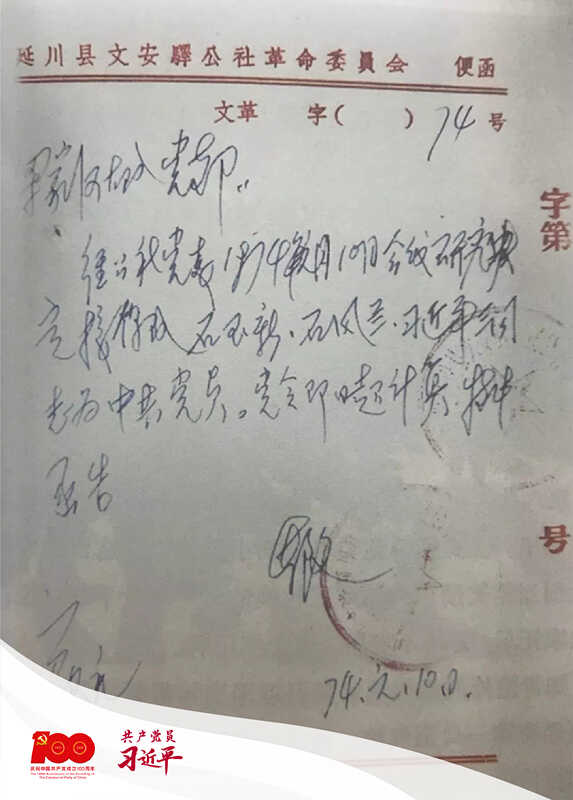 延川县文安驛公社革命委員会 便函
文革 字( )74号
梁家河大队党支部:
经公社党委1974年1月10日会议研究决
定接收 石玉新、石风兰、习近平同
志为中共党员。党令即日起计算, 特此
函告
74.元.10日.
字第
号
100
1921 2021
庆祝中国共产党成立100周年
The 100th Anniversary of the Founding of
The Communist Party of China
共产党员
习近平